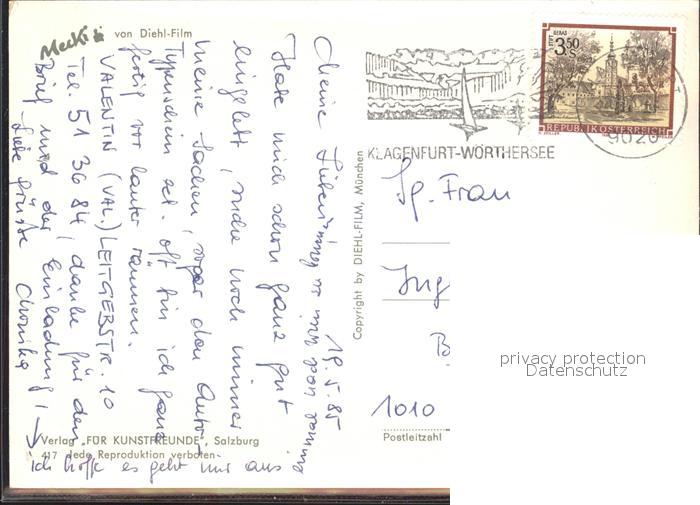 Mecki von Diehl-Film
19. 5. 85
Habe mich schon ganz gut
eingelebt, suche noch immer
meine Sachen, sogar den Auto-
Typenschein etc. oft bin ich ganz
fertig vor lauter räumen.
VALENTIN (VAL.) LEITGEBSTR. 10
Tel. 51 36 84, danke für den
Brief und der Einladung!
Liebe Grüsse
ich hoffe es geht nur aus
Verlag „FÜR KUNSTFREUNDE", Salzburg
417 Jede Reproduktion verboten
Copyright by DIEHL-FILM, München
KLAGENFURT-WÖRTHERSEE
STIFT GERAS
3.50
REPUBLIK ÖSTERREICH
9020
Frau
Ing
B
1010
Postleitzahl
privacy protection
Datenschutz